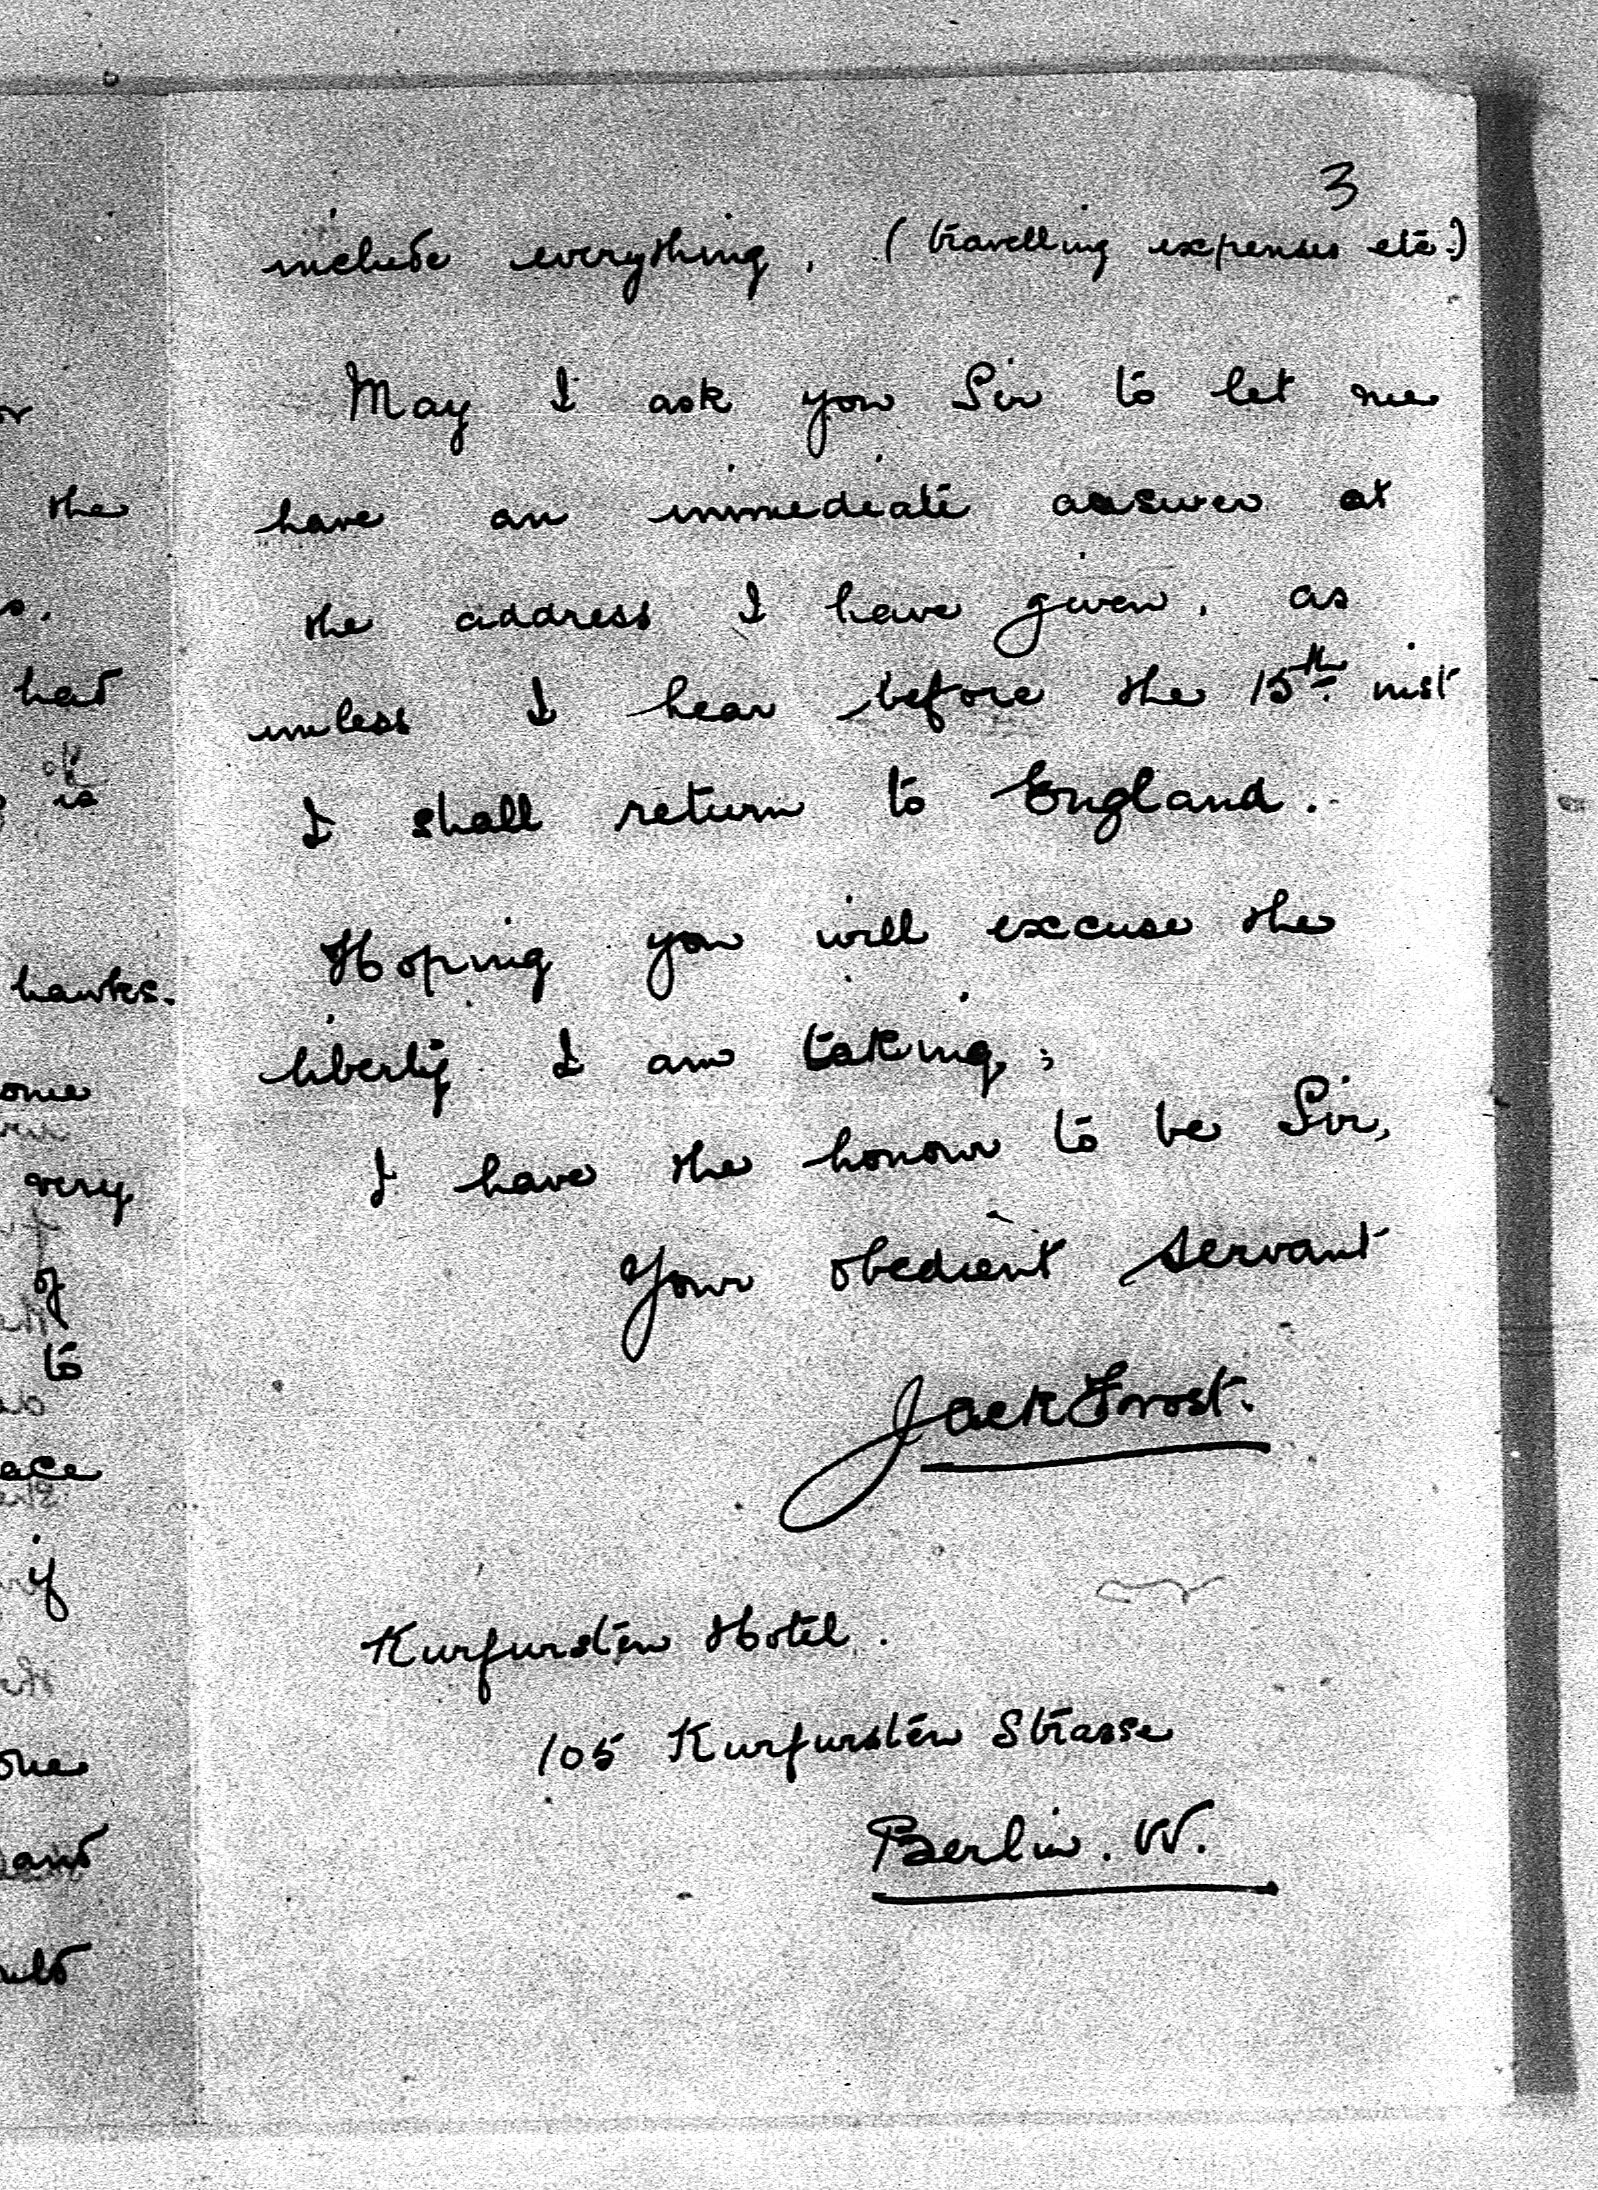 3
include everything, (travelling expenses etc.)
May I ask you Sir to let me
have an immediate answer at
the address I have given, as
unless I hear before the 15th inst
I shall return to England.
Hoping you will excuse the
liberty I am taking,
I have the honour to be Sir,
Your obedient servant
Jack Frost.
Kurfursten Hotel.
105 Kurfursten Strasse
Berlin. W.
the
had
is
hawks.
very
of
to
if
and